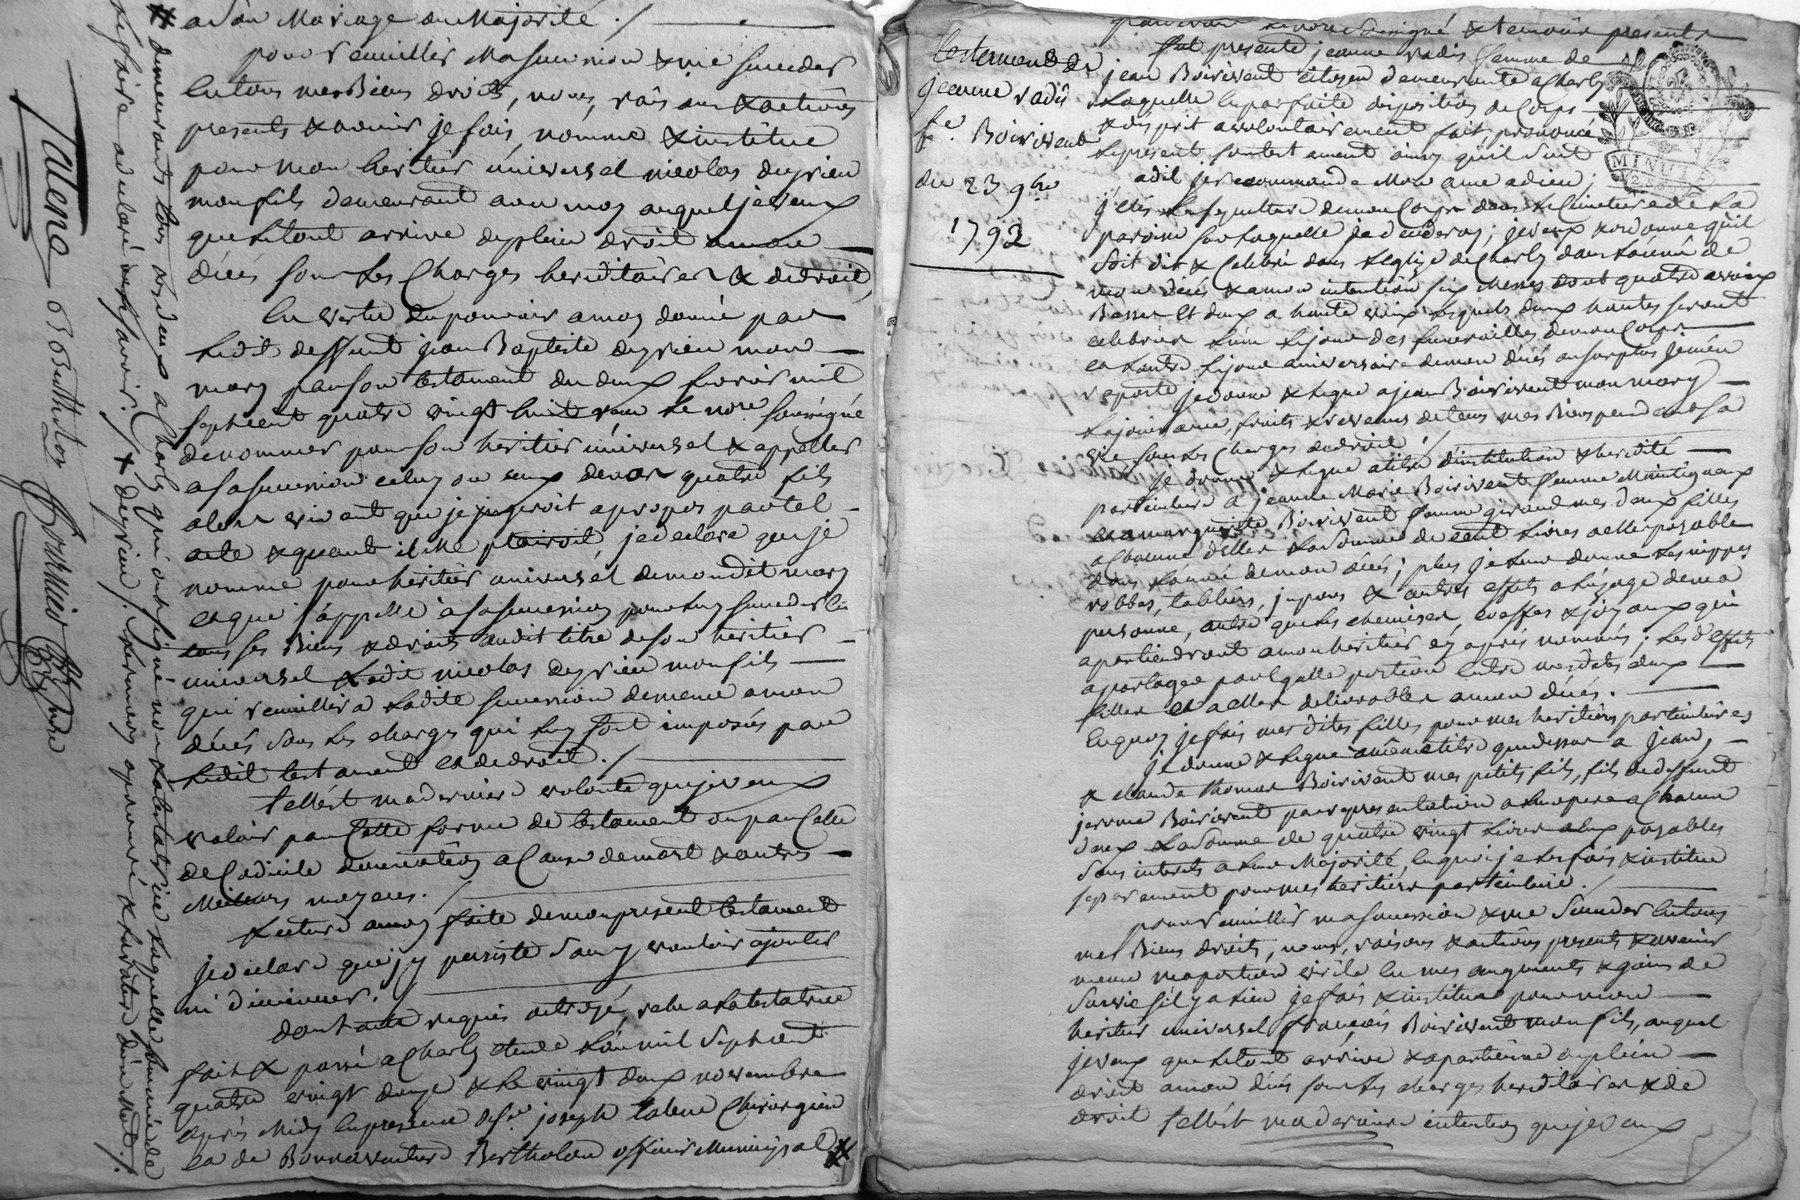 a son Mariage ou Majorité ./.
pour recueillir Ma succession & me succeder
en tous mes Biens droits, noms, rais ons & actions
presents & avenir je fais, nomme & institue
pour mon heritier universel nicolas deyrieu
mon fils demeurant avec moy auquel je veux
que le tout arrive de plein droit a mon
décés sous les Charges hereditaires & de droit,
En vertu du pouvoir a moy donné par
ledit deffunt jean Baptiste deyrieu mon
mary par son testament du deux fevrier mil
sept cent quatre vingt huit reçu le nore soussigné
de nommer pour son heritier universel & appeller
a sa succession celuy ou ceux de nos quatre fils
alors vivant que je jugeroit a propos par tel
acte & quant il me plairoit, je declare que je
nomme pour heritier universel de mondit mary
et que j'appelle a sa succession pour luy succeder en
tous ses Biens & droits audit titre de son heritier
universel ledit nicolas deyrieu mon fils
qui recuillira ladite succession de meme a mon
décés sous les charges qui luy sont imposées par
ledit testament et de droit ./.
telle est ma derniere volonté que je veux
valoir par cette forme de testament ou par celle
de Codicile donnation a Cause de mort & autres
Meilleurs moyens ./.
Lecture a moy faite de mon present testament
je declare que j'y persiste sans y vouloir ajouter
ni diminuer ./.
dont acte requis octroyé, relu a la testatrice
fait & passé a Charly étude L'an mil sept cent
quatre vingt douze & le vingt deux novembre
après Midy en presence de sr joseph talene Chirurgien
et de Bonnaventure Bertholon officier Municipal #
# demeurants tous les deux a Charly qui ont signé non la testatrice laquelle enquise de
le faire a declaré ne sçavoir ./.
Talene
B Bertholon
testament de
jeanne radis
fe. Boirivent
du 23 9bre
1792
MINUTE
fut presente jeanne radis femme de
jean Boirivent citoyen demeurante a Charly
Laquelle en parfaite disposition de Corps
& d'esprit a volontairement fait & prononcé
le present testament ainsy qu'il suit
adit je recommande Mon ame a dieu;
j'élis la sepulture de mon Corps dans le Cimetiere de la
paroisse sous laquelle je decederay; je veux & ordonne qu'il
soit dit & Celebré dans l'eglise de Charly dans l'année de
mon decés & a mon intention six Messes dont quatre a voix
Basse et deux a haute voix lesquels deux hautes seront
celebrées l'une le jour des funerailles de mon Corps
et l'autre le jour aniversaire de mon décés au surplus je m'en
raporte je donne & legue a jean Boirivent mon mary
la jouissance, fruits & revenus de tous mes Biens pendant sa
vie sous les Charges de droit ./.
je donne & legue a titre d'institution & heredité
particuliere a jeanne Marie Boirivent femme
et a marguerite Boirivent femme giraud mes deux filles
a Chacune d'elles la somme de cent livres a elles payable
dans l'année de mon décés; plus je leur donne les nippes
robbes, tabliers, jupons & autres effets a l'usage de ma
personne, autre que les chemises, coeffes & joyaux qui
apartiendront a mon heritier cy après nommé; lesd. effets
a partager par egalle portion entre mes dites deux
filles et a elles delivrables a mon décés.
en quoy je fais mes dites filles pour mes heritieres particulieres
je donne & legue a meme titre que dessus a jean,
& claude thomas Boirivent mes petits fils, fils de deffunt
jerome Boirivent par representation de leur pere a Chacun
d'eux la somme de quatre vingt livres a eux payables
sans interets a leur Majorité, en quoi je les fais & institue
separement pour mes heritiers particuliers ./.
pour recuillir ma succession & me succeder en tous
mes Biens droits, noms, raisons & actions presents & avenir
meme ma portion virile en mes augments & gains de
survie s'il y a lieu je fais & institue pour mon
heritier universel françois Boirivent mon fils, auquel
je veux que le tout arrive & apartienne de plein
droit a mon décés sous les charges hereditaires & de
droit telle est ma derniere intention que je veux